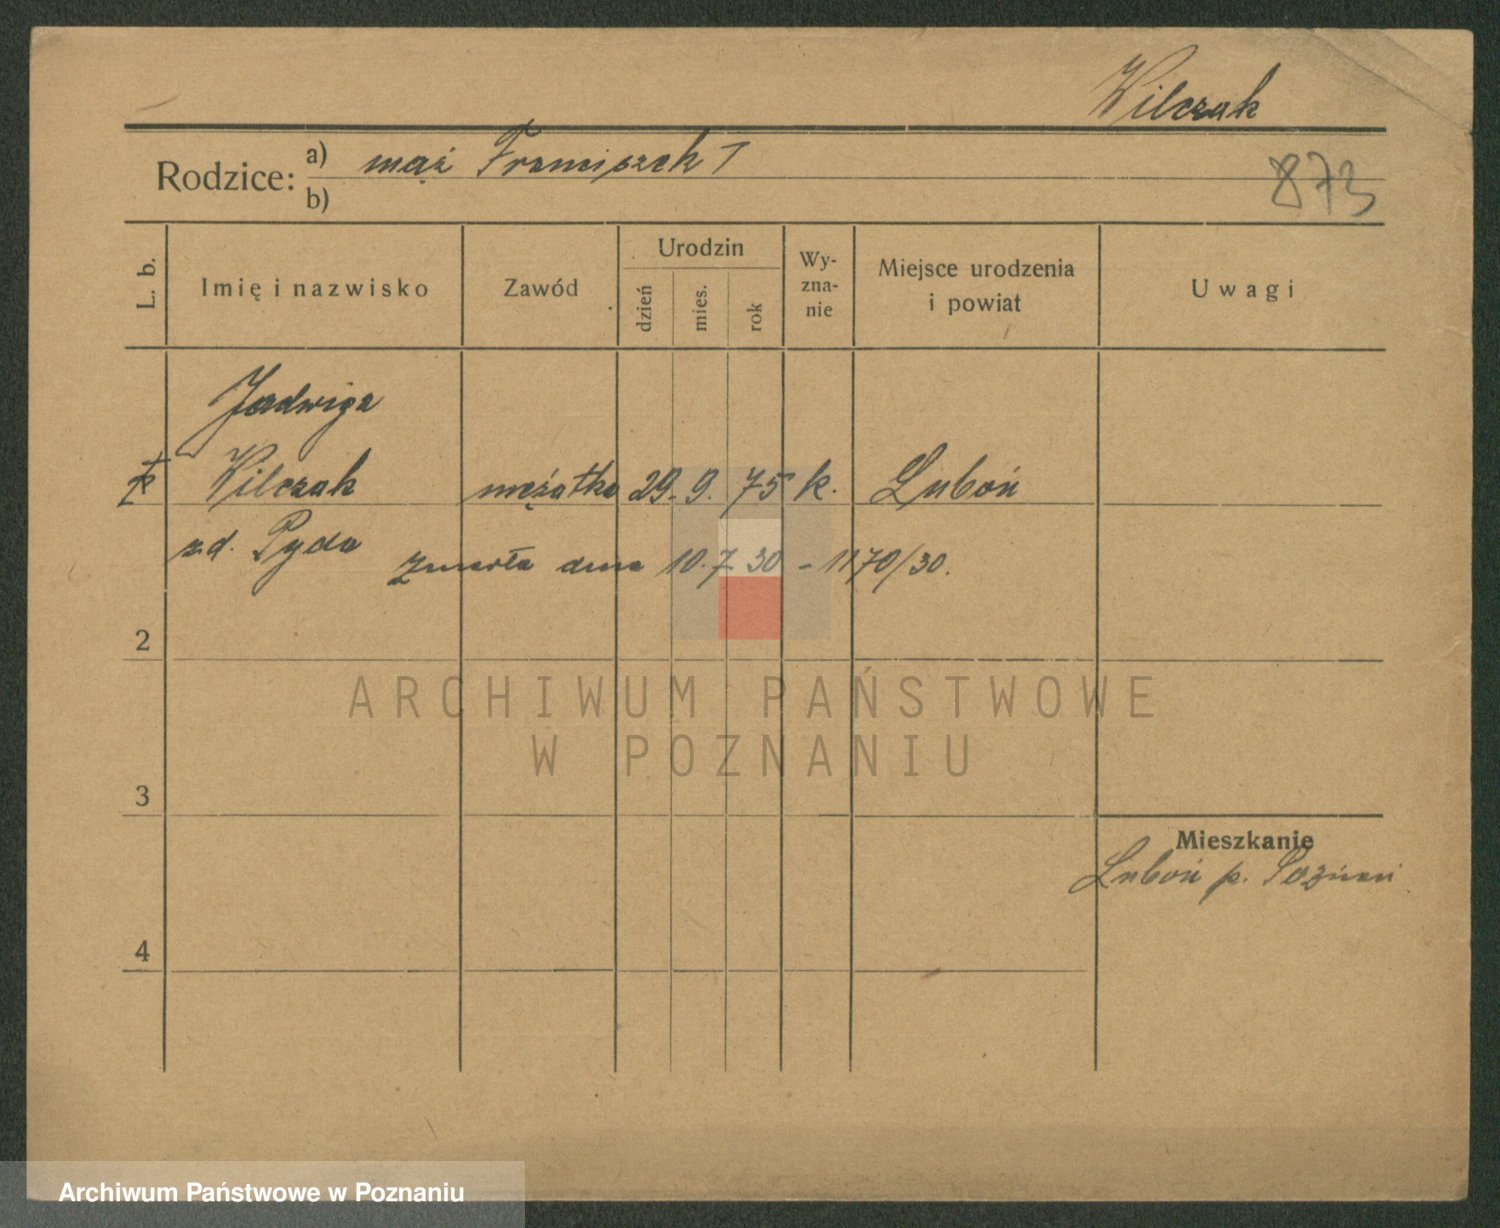 Wilczak
Rodzice: a) mąż Franciszek †
b)
873
L. b.
Imię i nazwisko
Zawód
Urodzin
dzień
mies.
rok
Wy-
zna-
nie
Miejsce urodzenia
i powiat
Uwagi
Jadwiga
Wilczak mężatka 29. 9. 75 k. Luboń
z d. Pyda
zmarła dnia 10.7 30 - 1170/30.
2
3
4
Mieszkanie
Luboń p. Poznań
ARCHIWUM PAŃSTWOWE
W POZNANIU
Archiwum Państwowe w Poznaniu